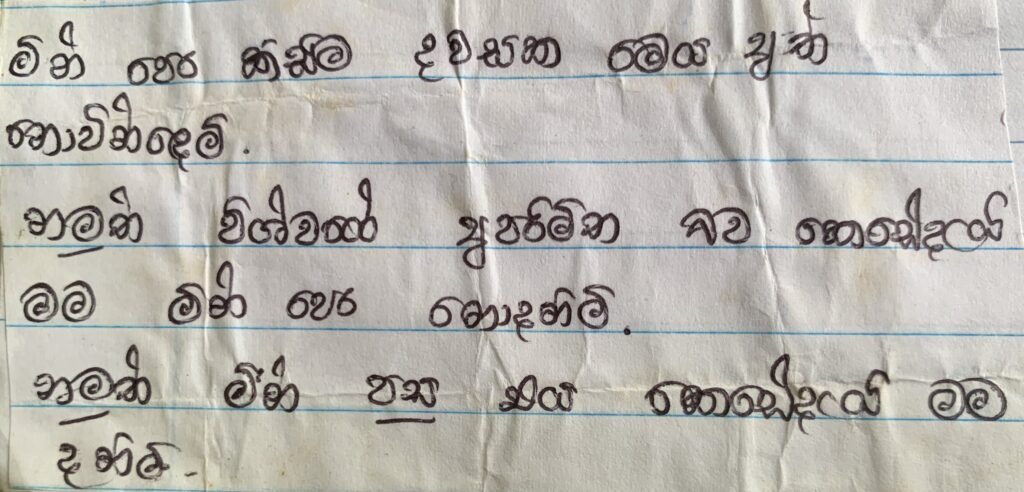 මින් පෙර කිසිම දවසක මෙය අත්
නොවින්ඳෙමි.
නමුත් විශ්වයේ අපරිමිත බව කෙසේදැයි
මම මින් පෙර නොදනිමි.
නමුත් මින් පසු එය කෙසේදැයි මම
දනිමි.